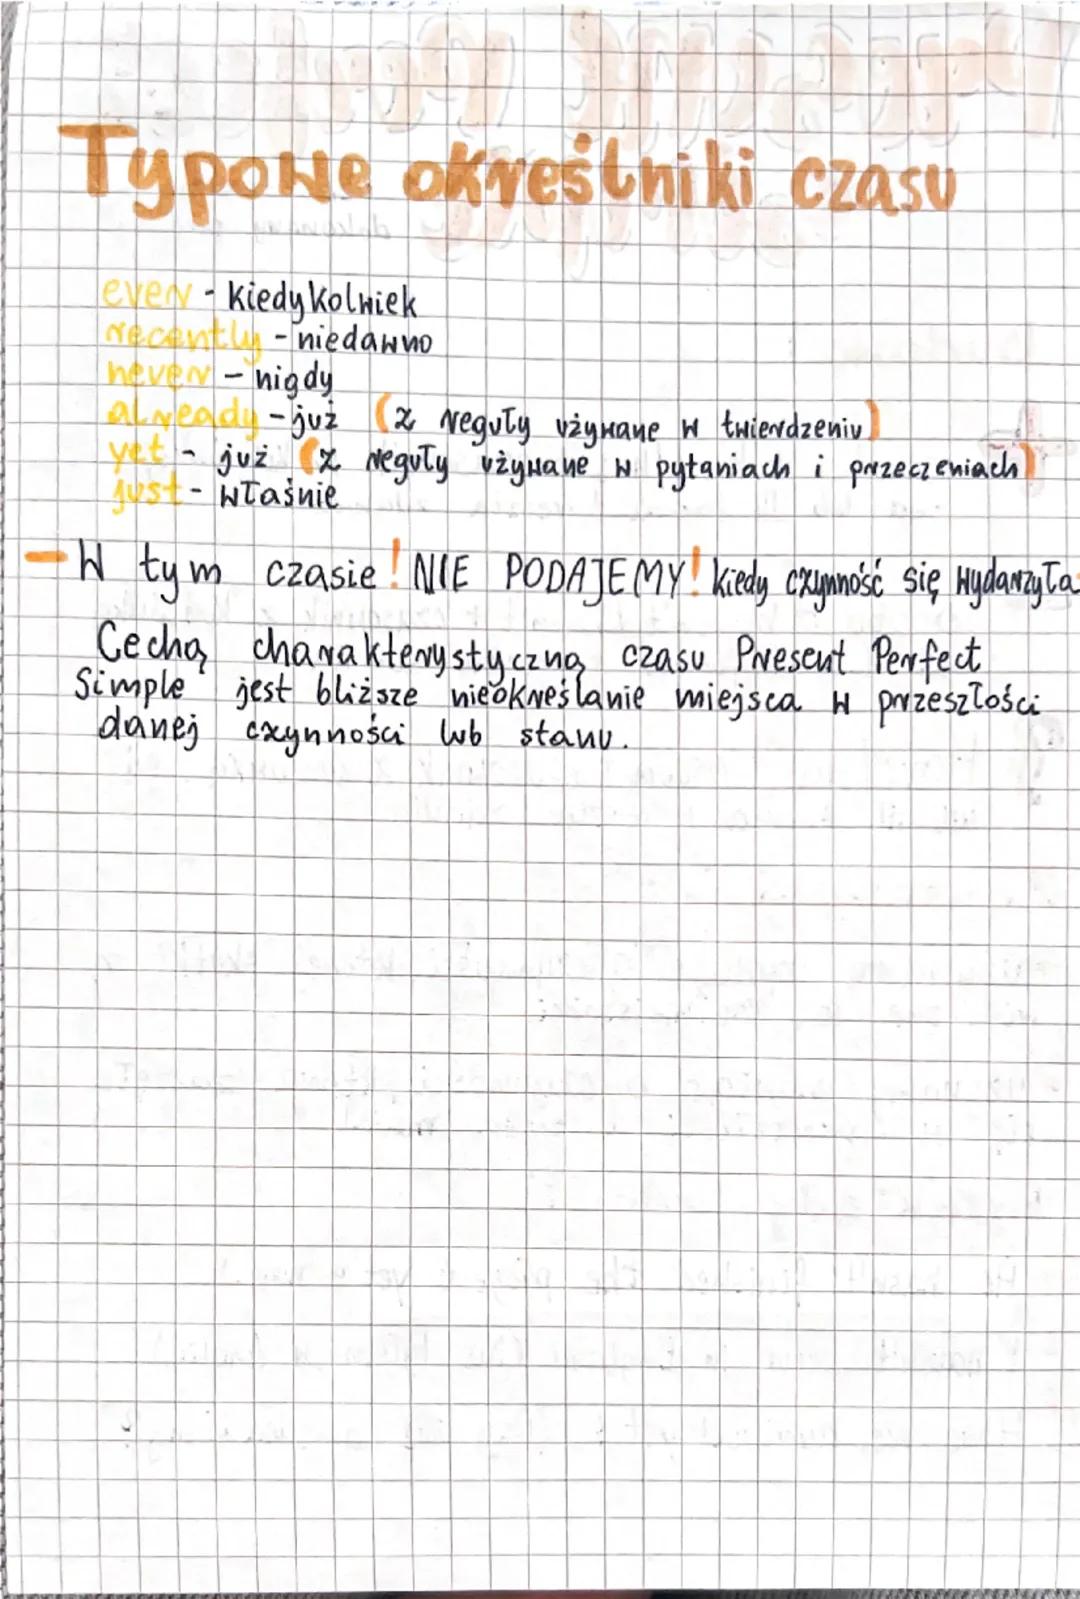 Typowe określniki czasu
ever - kiedykolwiek
recently - niedawno
never - nigdy
already - już (z reguły używane w twierdzeniu)
yet - już (z reguły używane w pytaniach i przeczeniach)
just - właśnie
- W tym czasie! NIE PODAJEMY! kiedy czynność się wydarzyła
Cechą charakterystyczną czasu Present Perfect
Simple jest bliższe nieokreślanie miejsca w przeszłości
danej czynności lub stanu.